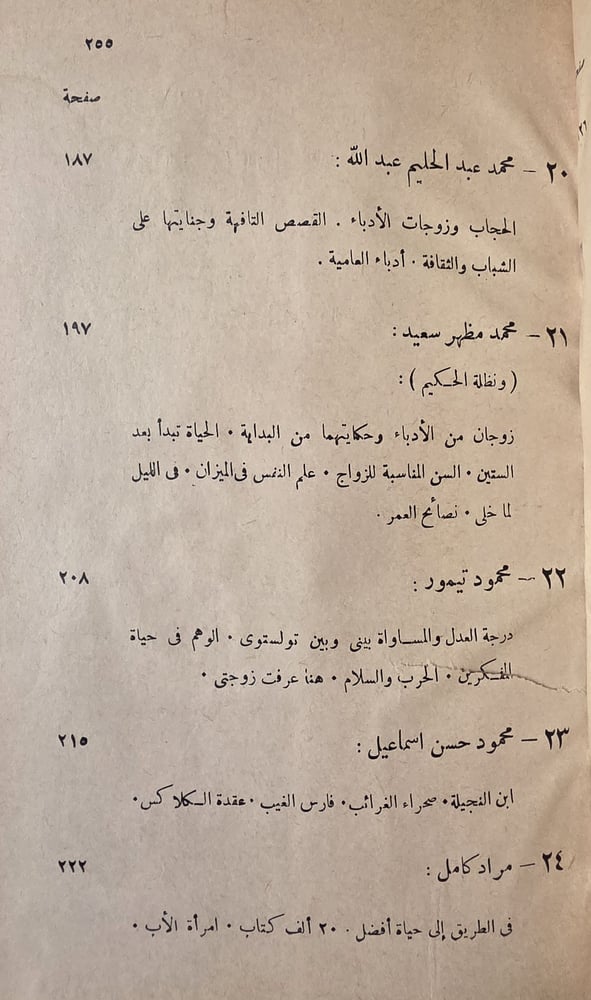 ٢٥٥
صفحة
٢٠ – محمد عبد الحليم عبد الله : ١٨٧
الحجاب وزوجات الأدباء . القصص التافهة وجنايتها على
الشباب والثقافة . أدباء العامية .
٢١ – محمد مظهر سعيد : ١٩٧
( ونظلة الحكيم ) :
زوجان من الأدباء وحكايتهما من البداية . الحياة تبدأ بعد
الستين . السن المناسبة للزواج . علم النفس فى الميزان . فى الليل
لما خلى . نصائح العمر .
٢٢ – محمود تيمور : ٢٠٨
درجة العدل والمساواة بينى وبين تولستوى . الوهم فى حياة
المفكرين . الحرب والسلام . هنا عرفت زوجتى .
٢٣ – محمود حسن اسماعيل : ٢١٥
ابن النجيلة . صحراء الغرائب . فارس الغيب . عقدة الكلاكس .
٢٤ – مراد كامل : ٢٢٢
فى الطريق إلى حياة أفضل . ٢٠ ألف كتاب . امرأة الأب .